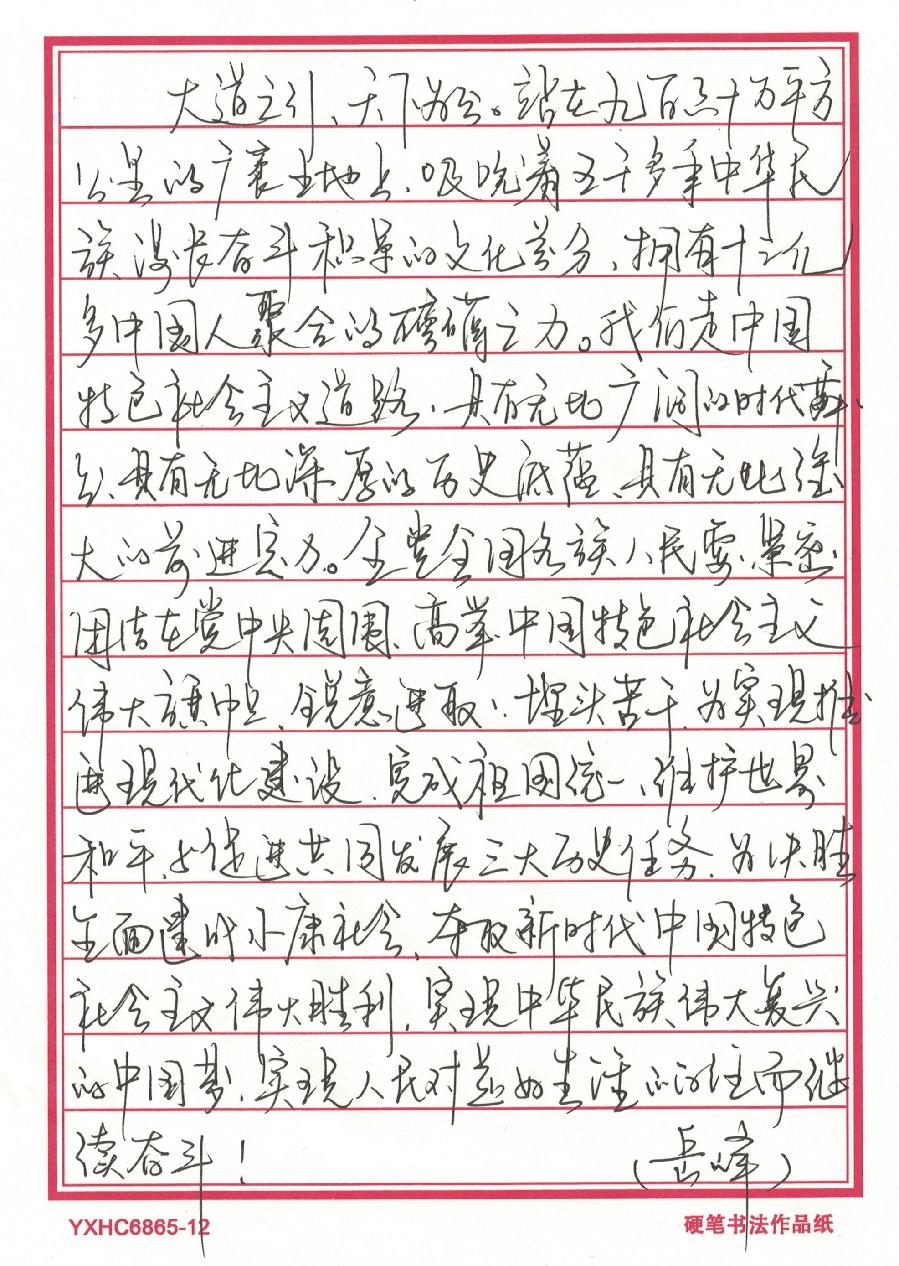 大道之行，天下为公。站在九百六十万平方
公里的广袤土地上，吸吮着五千多年中华民
族漫长奋斗积累的文化养分，拥有十三亿
多中国人聚合的磅礴之力。我们走中国
特色社会主义道路，具有无比广阔的时代舞
台，具有无比深厚的历史底蕴，具有无比强
大的前进定力。全党全国各族人民要紧密
团结在党中央周围，高举中国特色社会主义
伟大旗帜，锐意进取，埋头苦干，为实现推
进现代化建设、完成祖国统一、维护世界
和平与促进共同发展三大历史任务，为决胜
全面建成小康社会、夺取新时代中国特色
社会主义伟大胜利、实现中华民族伟大复兴
的中国梦、实现人民对美好生活的向往而继
续奋斗！ （岳峰）
YXHC6865-12 硬笔书法作品纸